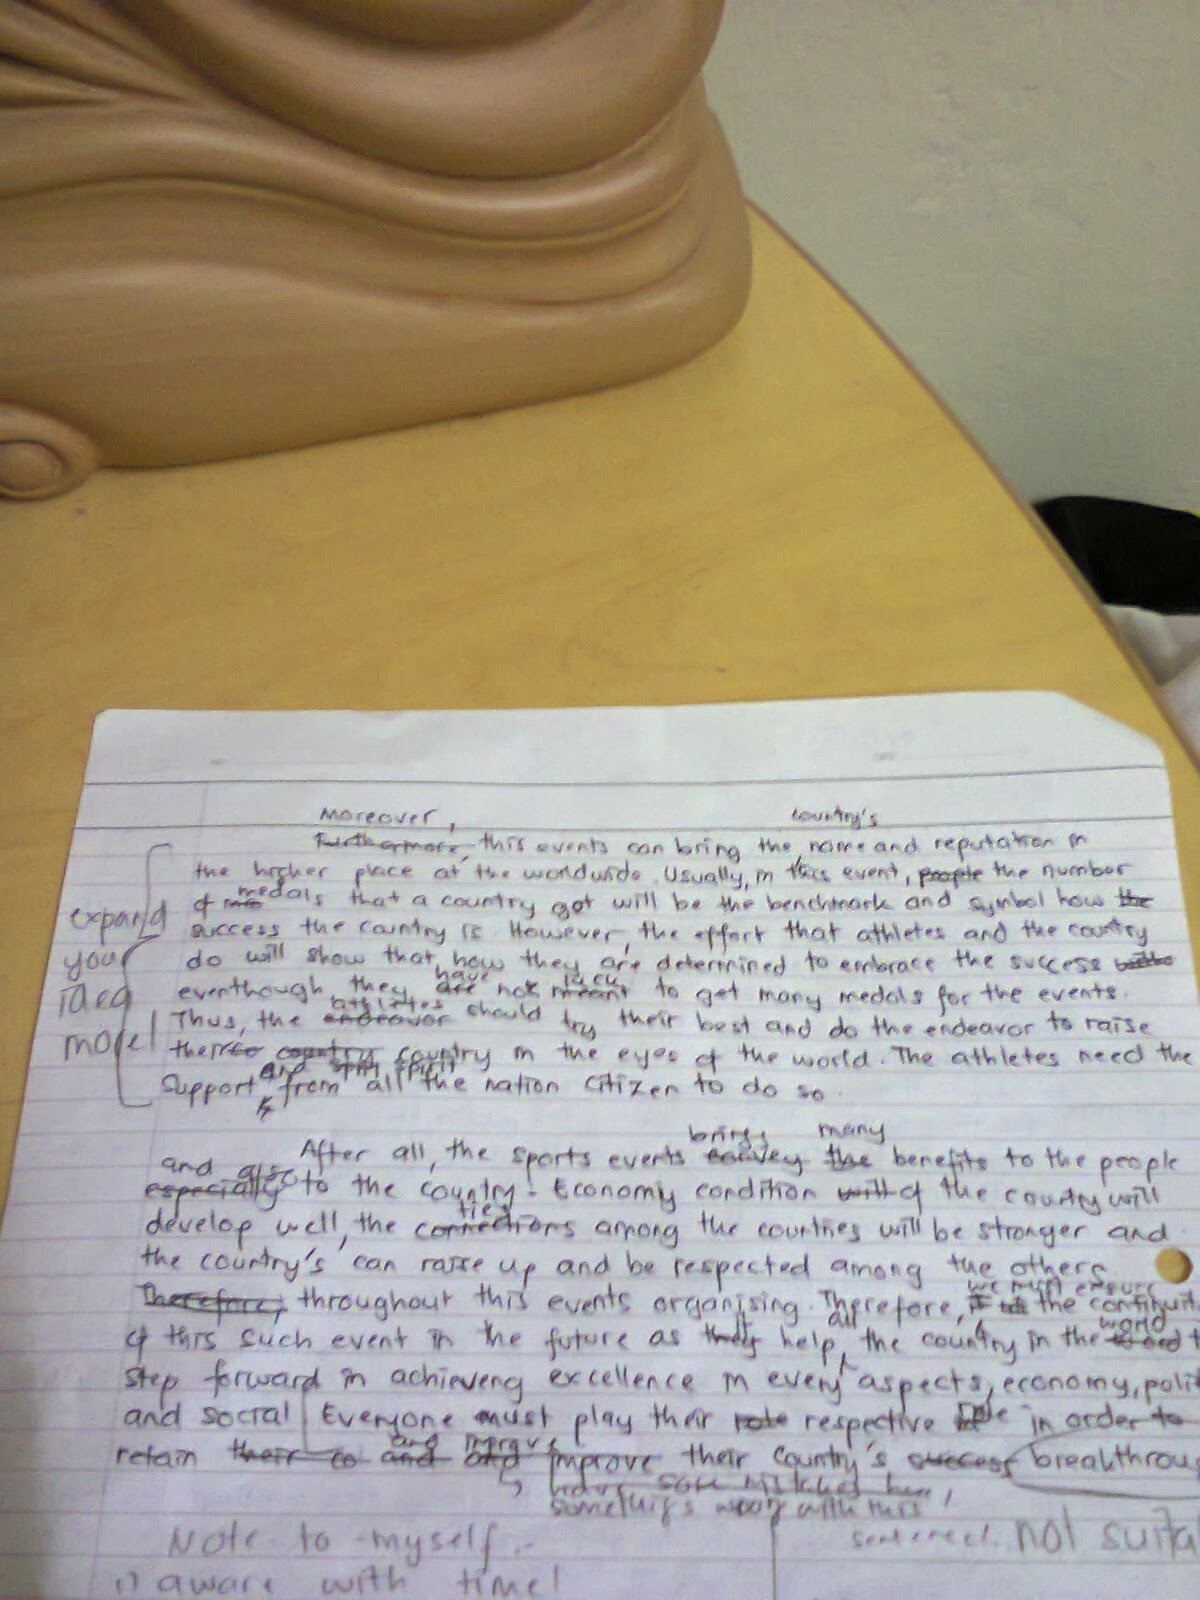 Moreover, country's
Furthermore, this events can bring the name and reputation in
the higher place at the worldwide. Usually, in this event, people the number
of medals that a country got will be the benchmark and symbol how the
success the country is. However, the effort that athletes and the country
do will show that, how they are determined to embrace the success
have luck
eventhough they are not meant to get many medals for the events.
athletes
Thus, the endeavor should try their best and do the endeavor to raise
their country country in the eyes of the world. The athletes need the
and spirit
support from all the nation citizen to do so.
expand
your
idea
more!
brings many
After all, the sports events convey the benefits to the people
and also
especially to the country. Economy condition will of the country will
ties
develop well, the connections among the countries will be stronger and
the country's can raise up and be respected among the others
we must ensure
Therefore, throughout this events organising. Therefore, the
it all world
of this such event in the future as they help the country in the
step forward in achieveng excellence in every aspects, economy,
and social Everyone must play their role respective role in order to
and improve
retain their co and and improve their country's success
something's wrong with this
sentence!
not
Note to myself :-
1) aware with time!